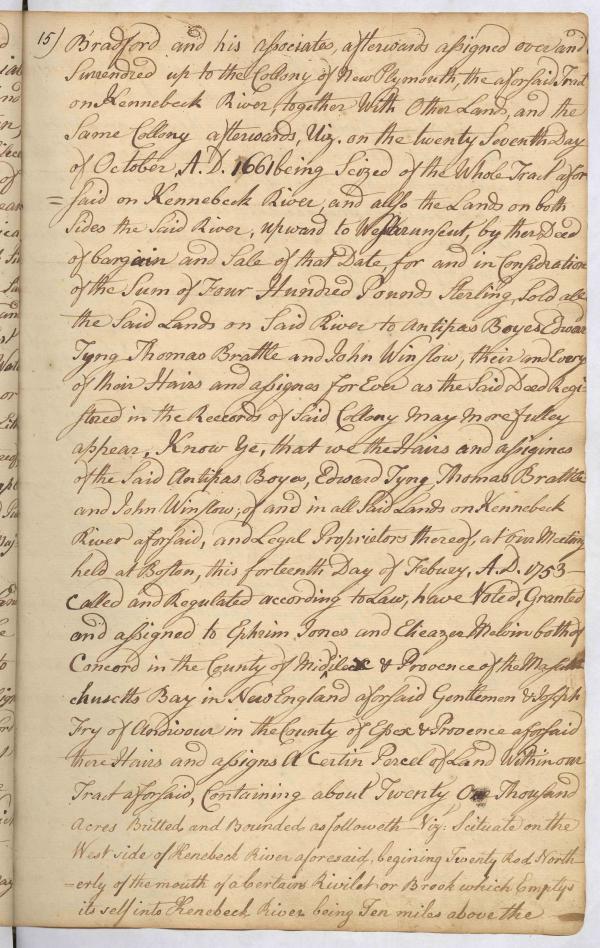 15) Bradford and his associates, afterwards assigned over and
Surrendred up to the Collony of New Plymouth, the aforsaid Tract
on Kennebeck River, together With Other Lands, and the
Same Collony afterwards, Viz. on the twenty Seventh Day
of October A.D. 1661 being Seized of the Whole Tract afor
= said on Kennebeck River, and allso the Lands on both
Sides the Said River, upward to Wessarunscut, by ther Deed
of bargain and Sale of that Date, for and in Considration
of the Sum of Four Hundred Pounds Sterling, Sold all
the Said Lands on Said River to Antipas Boyes Edward
Tyng Thomas Brattle and John Winslow, their and Every
of their Hairs and assignes for Ever as the Said Deed Regi-
stered in the Reccords of Said Collony May More fulley
appear, Know Ye, that we the Hairs and assigines
of the Said Antipas Boyes, Edward Tyng Thomas Brattle
and John Winslow, of and in all Said Lands on Kennebeck
River aforsaid, and Legal Proprietors thereof, at Our Meeting
held at Boston, this forteenth Day of Febuery, A.D. 1753—
Called and Regulated according to Law, have Voted, Granted
and assigned to Ephrim Jones and Elieazer Melvin both of
Concord in the County of & Provence of the
chusetts Bay in New England aforsaid Gentlemen & Joseph
Fry of Andivour in the County of Essex & Provence aforsaid
there Hairs and assigns A Certin Percel of Land Within our
Tract aforsaid, Containing about Twenty One Thousand
Acres Butted and Bounded as followeth Viz: Scituate on the
West side of Kenebeck River aforesaid, begining Twenty Rod North-
-erly of the mouth of a certain Rivilet or Brook which Emptys
its self into Kenebeck River being Ten miles above the